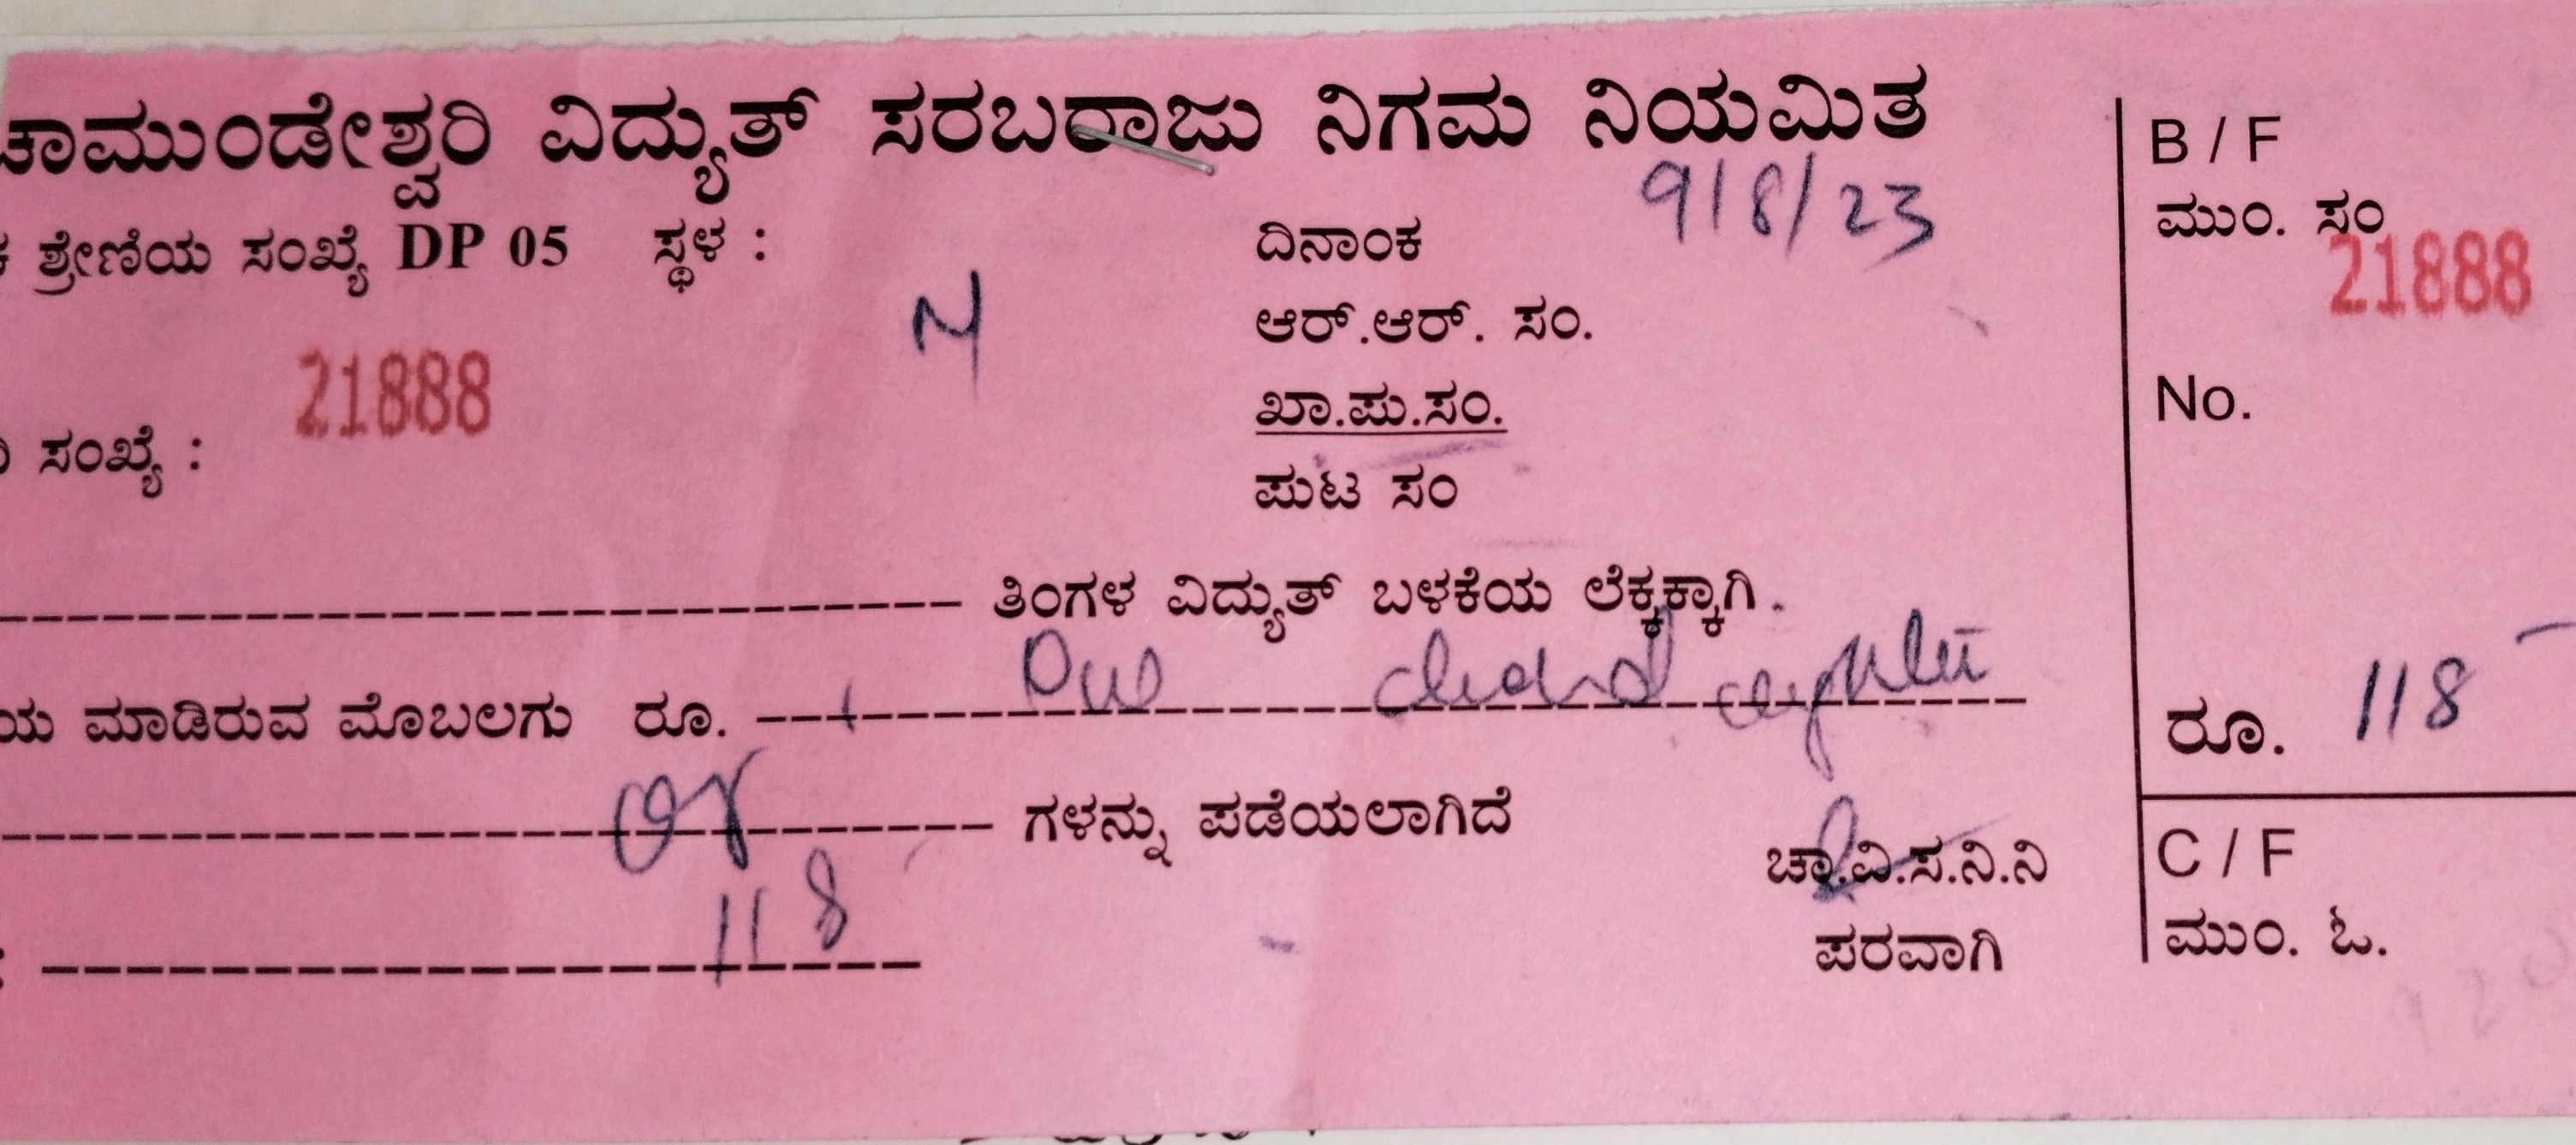 ಚಾಮುಂಡೇಶ್ವರಿ ವಿದ್ಯುತ್ ಸರಬರಾಜು ನಿಗಮ ನಿಯಮಿತ
ಶ್ರೇಣಿಯ ಸಂಖ್ಯೆ DP 05 ಸ್ಥಳ :
ದಿನಾಂಕ 9/8/23
ಆರ್.ಆರ್. ಸಂ.
21888
ಖಾ.ಪು.ಸಂ.
ಸಂಖ್ಯೆ :
ಪುಟ ಸಂ
ತಿಂಗಳ ವಿದ್ಯುತ್ ಬಳಕೆಯ ಲೆಕ್ಕಕ್ಕಾಗಿ.
ಮಾಡಿರುವ ಮೊಬಲಗು ರೂ.
ಗಳನ್ನು ಪಡೆಯಲಾಗಿದೆ
118
ಚಾ.ವಿ.ಸ.ನಿ.ನಿ
ಪರವಾಗಿ
B / F
ಮುಂ. ಸಂ
21888
No.
ರೂ. 118
C / F
ಮುಂ. ಓ.